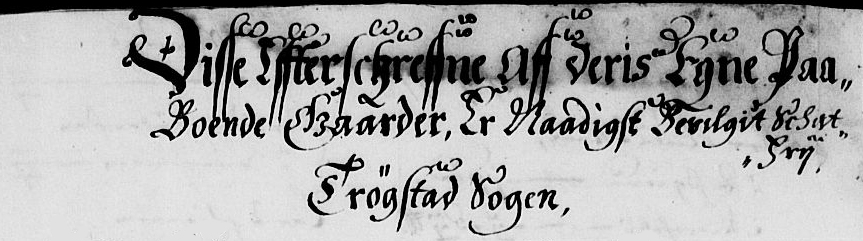 Disse Effterschreffne Aff deris Egne Paa„
Boende Gaarder, Er Naadigst Bevilgit Schat„
„Frÿ,
Trögstad Sogen,